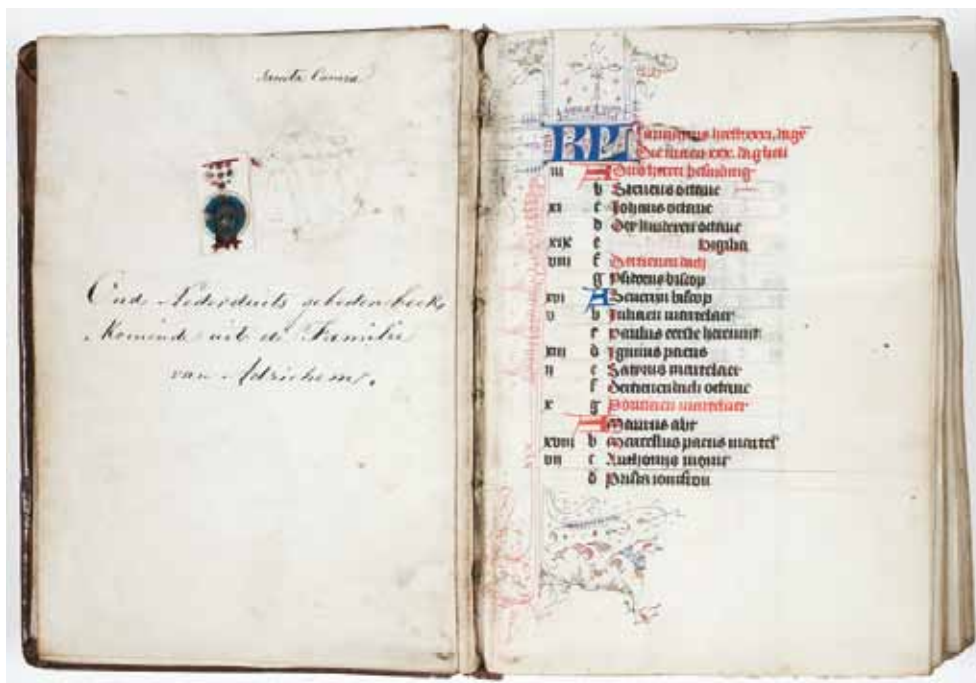 Sancta Camera
Oud-Nederduits gebedenboek,
Komende uit de Familie
van Adrichem.
KL Januarius heeft xxxi. dagē
Die maen xxx. dagheñ
iii A Ons heren besniding
b Steuenus octaue
xi c Johannis octaue
d Der kinderen octaue
xix e Vigilia
viii f Dertienen dach
g biscop
xvi A Seuerijn biscop
v b Juliaen martelaer
c Paulus eerste
xiii d Iginius paeus
ii e Satyrus martelaer
f Dertiendach octaue
x g Ponciaen martelaer
A Maurus abt
xviii b Marcellus paeus martel'
vii c Anthonius
d Prisca